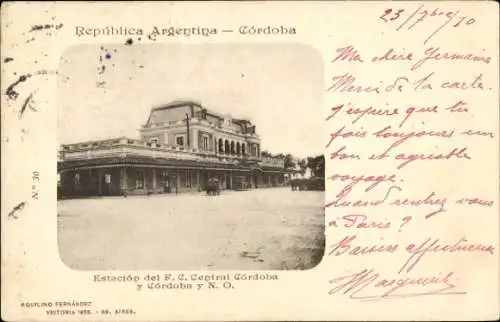 República Argentina – Córdoba
23/7bre/10
Ma chère Germaine
Merci de la carte.
j'espère que tu
fais toujours un
bon et agréable
voyage.
Quand rentrez vous
à Paris?
Baisers affectueux
Marguerite
N.º 30
Estación del F. C. Central Córdoba
y Córdoba y N. O.
AQUILINO FERNÁNDEZ
VICTORIA - BS. AIRES.